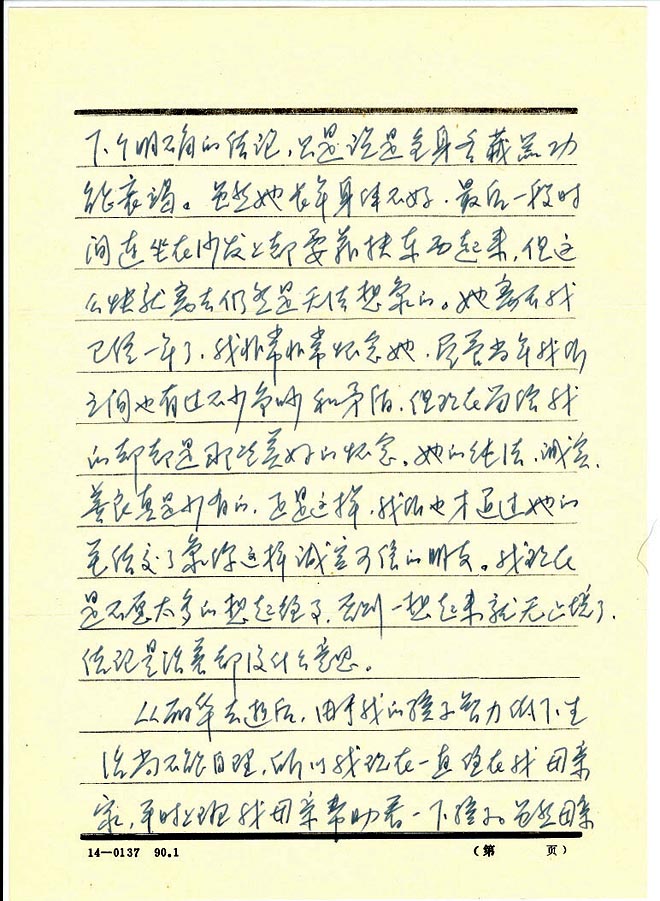 下个明确的结论，只是说是全身各藏器功
能衰竭。虽然她长年身体不好，最后一段时
间连坐在沙发上都要靠扶东西起来，但这
么快就离去仍然是无法想象的。她离开我
已经一年了，我非常非常怀念她，尽管当年我们
之间也有过不少争吵和矛盾，但现在留给我
的却都是那些美好的怀念。她的纯洁、诚实、
善良真是少有的，正是这样，我们也才通过她的
交了象你这样诚实可信的朋友。我现在
是不愿太多的想起经了，否则一想起来就无止境了，
结论是活着却没什么意思。
从丽华去逝后，由于我的孩子智力低下生
活尚不能自理，所以我现在一直住在我母亲
家，平时上班我母亲帮助看一下孩子。虽然母亲
14—0137 90.1
（第 页）